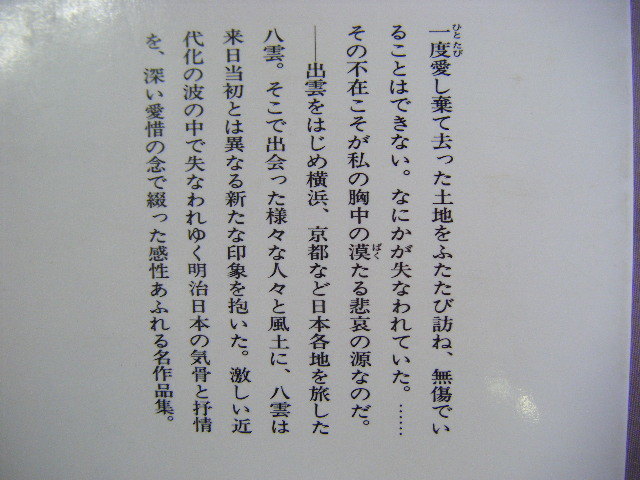 一度愛し棄て去った土地をふたたび訪ね、無傷でい
ることはできない。なにかが失なわれていた。……
その不在こそが私の胸中の漠たる悲哀の源なのだ。
――出雲をはじめ横浜、京都など日本各地を旅した
八雲。そこで出会った様々な人々と風土に、八雲は
来日当初とは異なる新たな印象を抱いた。激しい近
代化の波の中で失なわれゆく明治日本の気骨と抒情
を、深い愛惜の念で綴った感性あふれる名作品集。